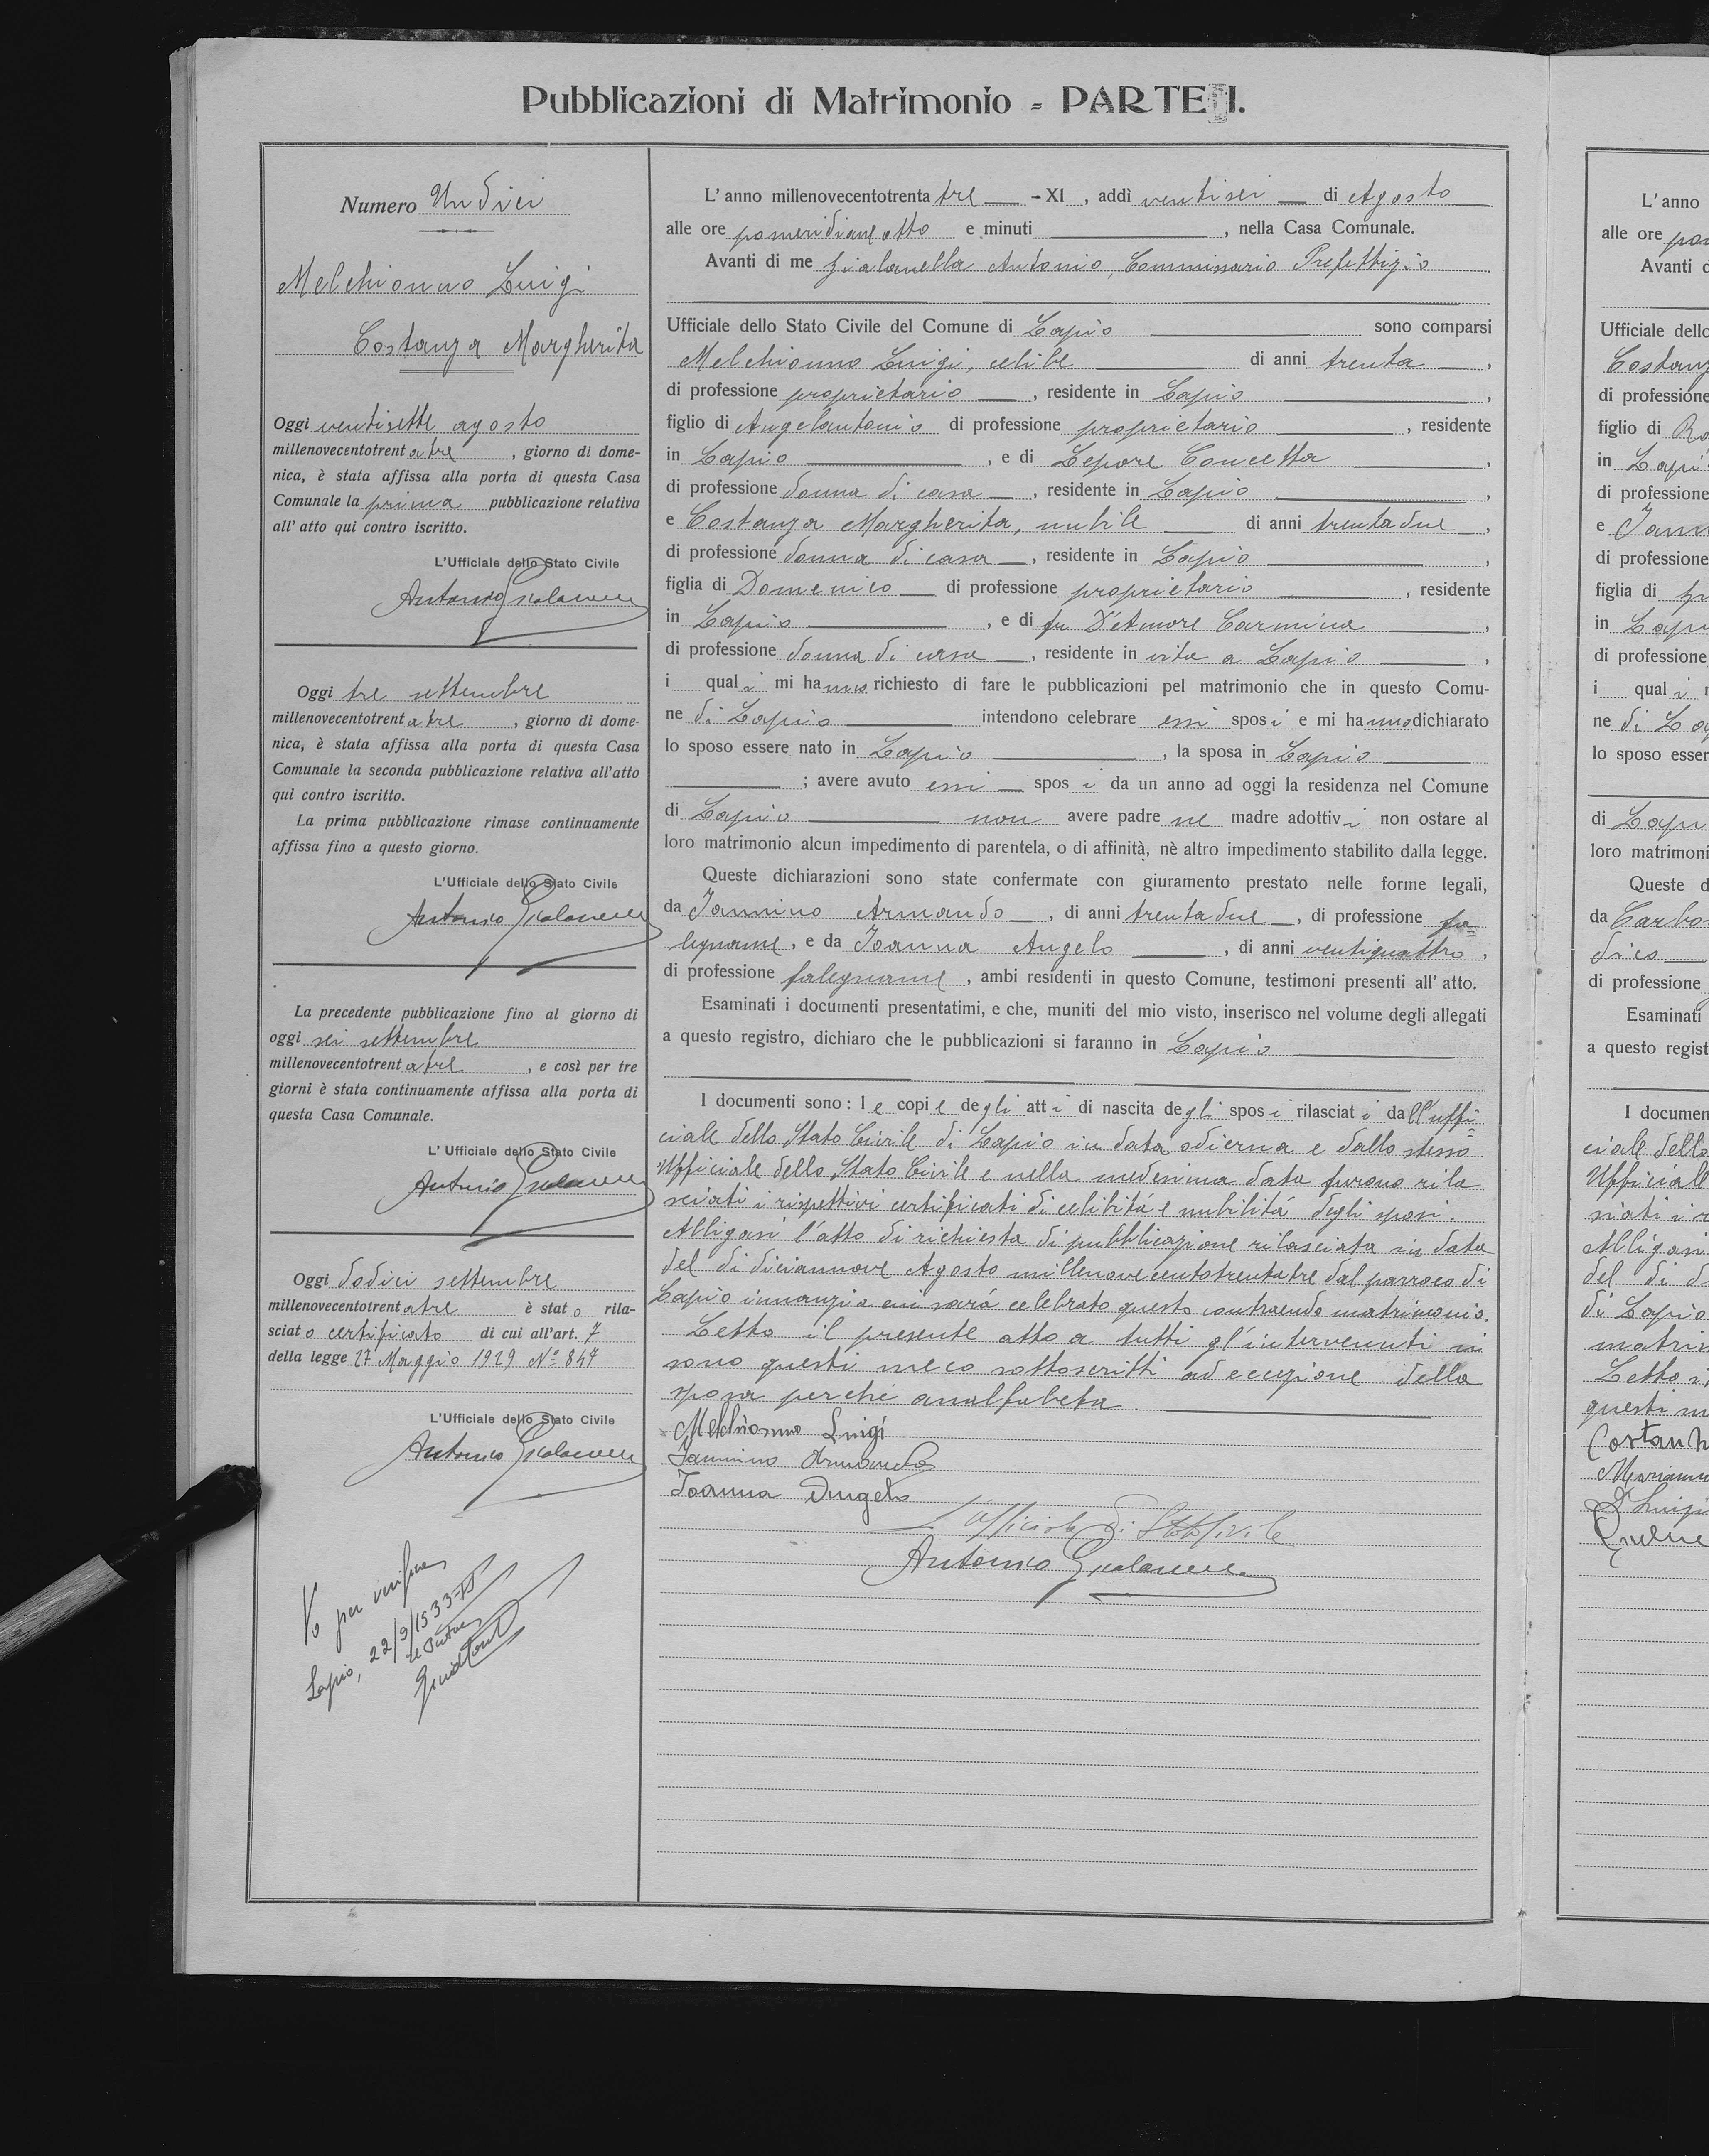 Pubblicazioni di Matrimonio = PARTE I.
Numero Undici
Melchionno Luigi
Costanza Margherita
Oggi ventisette agosto
millenovecentotrentatre, giorno di dome-
nica, è stata affissa alla porta di questa Casa
Comunale la prima pubblicazione relativa
all' atto qui contro iscritto.
L'Ufficiale dello Stato Civile
Antonio Gialanella
Oggi tre settembre
millenovecentotrentatre, giorno di dome-
nica, è stata affissa alla porta di questa Casa
Comunale la seconda pubblicazione relativa all'atto
qui contro iscritto.
La prima pubblicazione rimase continuamente
affissa fino a questo giorno.
L'Ufficiale dello Stato Civile
Antonio Gialanella
La precedente pubblicazione fino al giorno di
oggi sei settembre
millenovecentotrentatre, e così per tre
giorni è stata continuamente affissa alla porta di
questa Casa Comunale.
L' Ufficiale dello Stato Civile
Antonio Gialanella
Oggi dodici settembre
millenovecentotrentatre è stato rila-
sciato certificato di cui all'art. 7
della legge 27 Maggio 1929 N.º 847
L'Ufficiale dello Stato Civile
Antonio Gialanella
Vº per verifica
Lapio, 22/9/1933-XI
L'anno millenovecentotrentatre - XI, addì ventisei di Agosto
alle ore pomeridiane otto e minuti , nella Casa Comunale.
Avanti di me Gialanella Antonio, Commissario Prefettizio
Ufficiale dello Stato Civile del Comune di Lapio sono comparsi
Melchionno Luigi, celibe di anni trenta,
di professione proprietario, residente in Lapio,
figlio di Angelantonio di professione proprietario, residente
in Lapio, e di Lepore Concetta,
di professione donna di casa, residente in Lapio,
e Costanza Margherita, nubile di anni trentadue,
di professione donna di casa, residente in Lapio,
figlia di Domenico di professione proprietario, residente
in Lapio, e di fu D'Amore Carmina,
di professione donna di casa, residente in vita a Lapio,
i quali mi hanno richiesto di fare le pubblicazioni pel matrimonio che in questo Comu-
ne di Lapio intendono celebrare essi sposi e mi hanno dichiarato
lo sposo essere nato in Lapio, la sposa in Lapio
; avere avuto essi sposi da un anno ad oggi la residenza nel Comune
di Lapio non avere padre ne madre adottivi non ostare al
loro matrimonio alcun impedimento di parentela, o di affinità, nè altro impedimento stabilito dalla legge.
Queste dichiarazioni sono state confermate con giuramento prestato nelle forme legali,
da Iannino Armando, di anni trentadue, di professione fa=
legname, e da Ioanna Angelo, di anni ventiquattro,
di professione falegname, ambi residenti in questo Comune, testimoni presenti all' atto.
Esaminati i documenti presentatimi, e che, muniti del mio visto, inserisco nel volume degli allegati
a questo registro, dichiaro che le pubblicazioni si faranno in Lapio
I documenti sono: le copie degli atti di nascita degli sposi rilasciati dall'uffi=
ciale dello Stato Civile di Lapio in data odierna e dallo stesso
Ufficiale dello Stato Civile e nella medesima data furono rila
sciati i rispettivi certificati di celibitá e nubilitá degli sposi.
Alligasi l'atto di richiesta di pubblicazione rilasciata in data
del di diciannove Agosto millenovecentotrentatre dal parroco di
Lapio innanzi a cui sará celebrato questo contraendo matrimonio.
Letto il presente atto a tutti gl'intervenuti si
sono questi meco sottoscritti ad eccezione della
sposa perché analfabeta.
Melchionno Luigi
Iannino Armando
Ioanna Angelo
L'Ufficiale di Stato Civile
Antonio Gialanella
L'anno
alle ore
Avanti
Ufficiale dello
di professione
figlio di
in
di professione
e
di professione
figlia di
in
di professione
i quali
ne di
lo sposo esser
di
loro matrimoni
Queste
da
dico
di professione
Esaminati
a questo regist
I documen
ciale dello
Ufficiale
di Lapio
questi